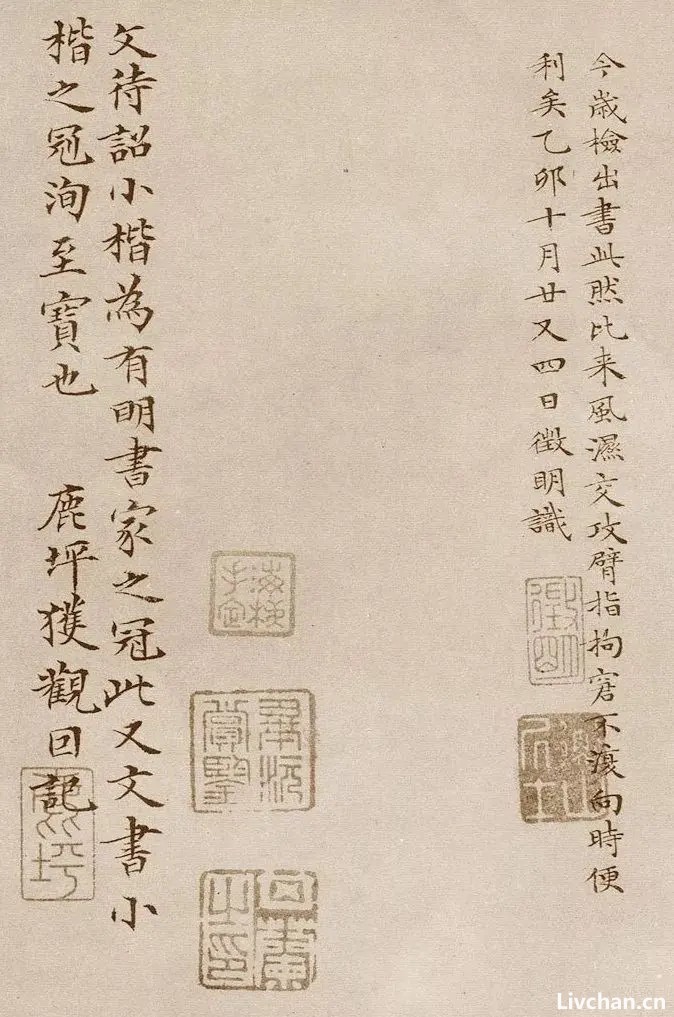 今歲檢出書此然比来風濕交攻臂指拘窘不復向時便
利矣乙卯十月廿又四日徵明識
徵明
畢沅
公肅之印
文待詔小楷為有明書家之冠此又文書小
楷之冠洵至寶也 鹿坪獲觀囙記
鹿坪
Livchan.cn